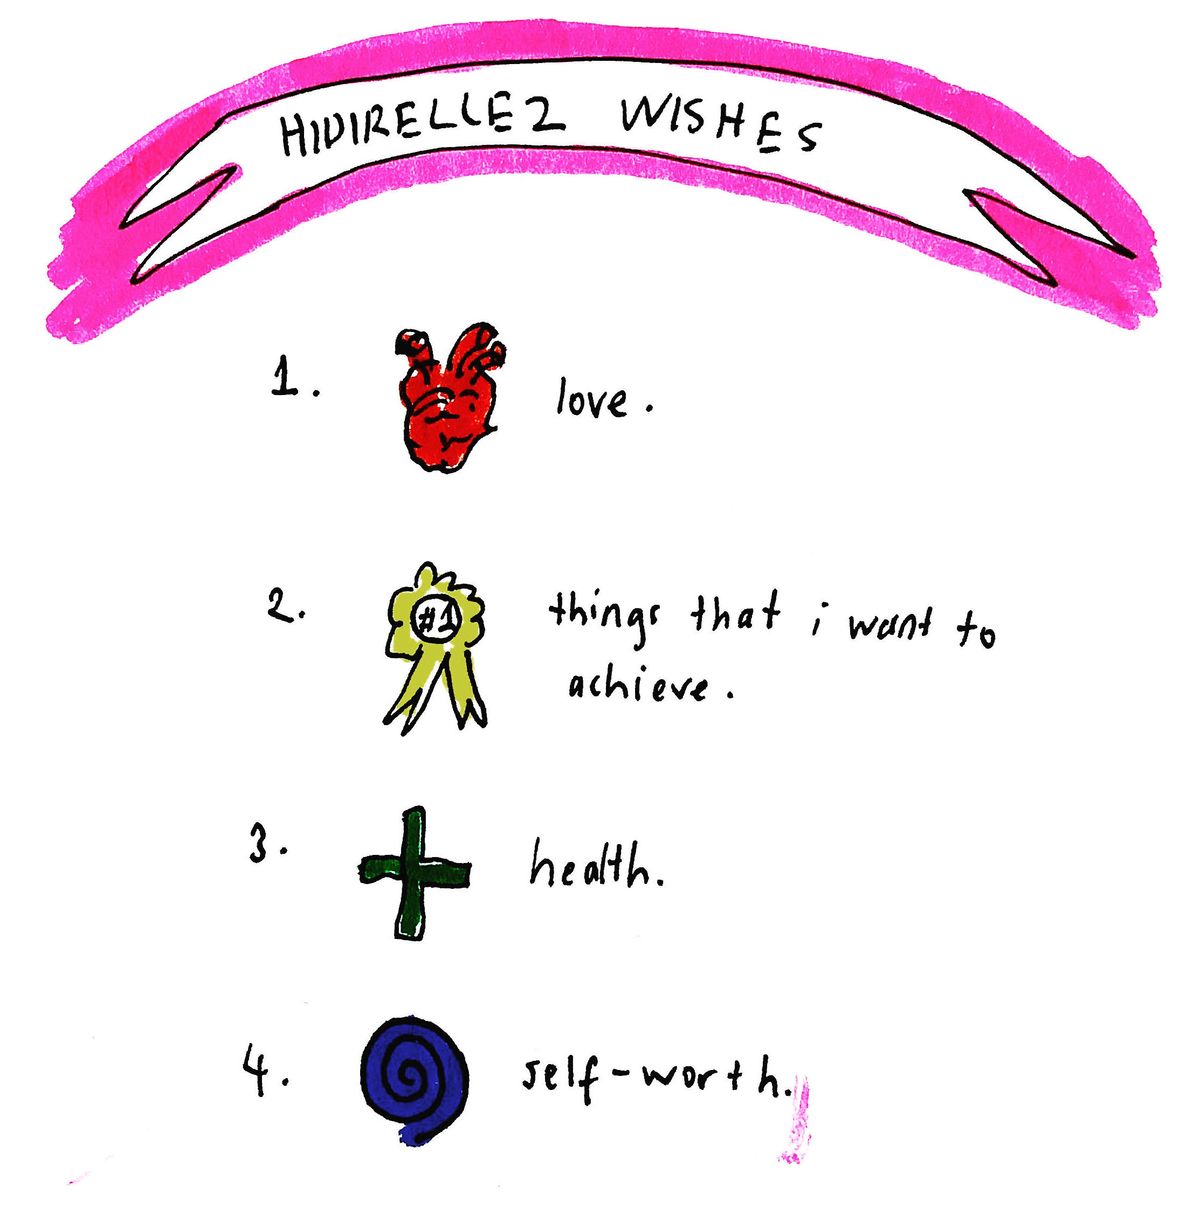 HIDIRELLEZ WISHES
1. love.
2. #1 things that i want to
achieve.
3. health.
4. self-worth.